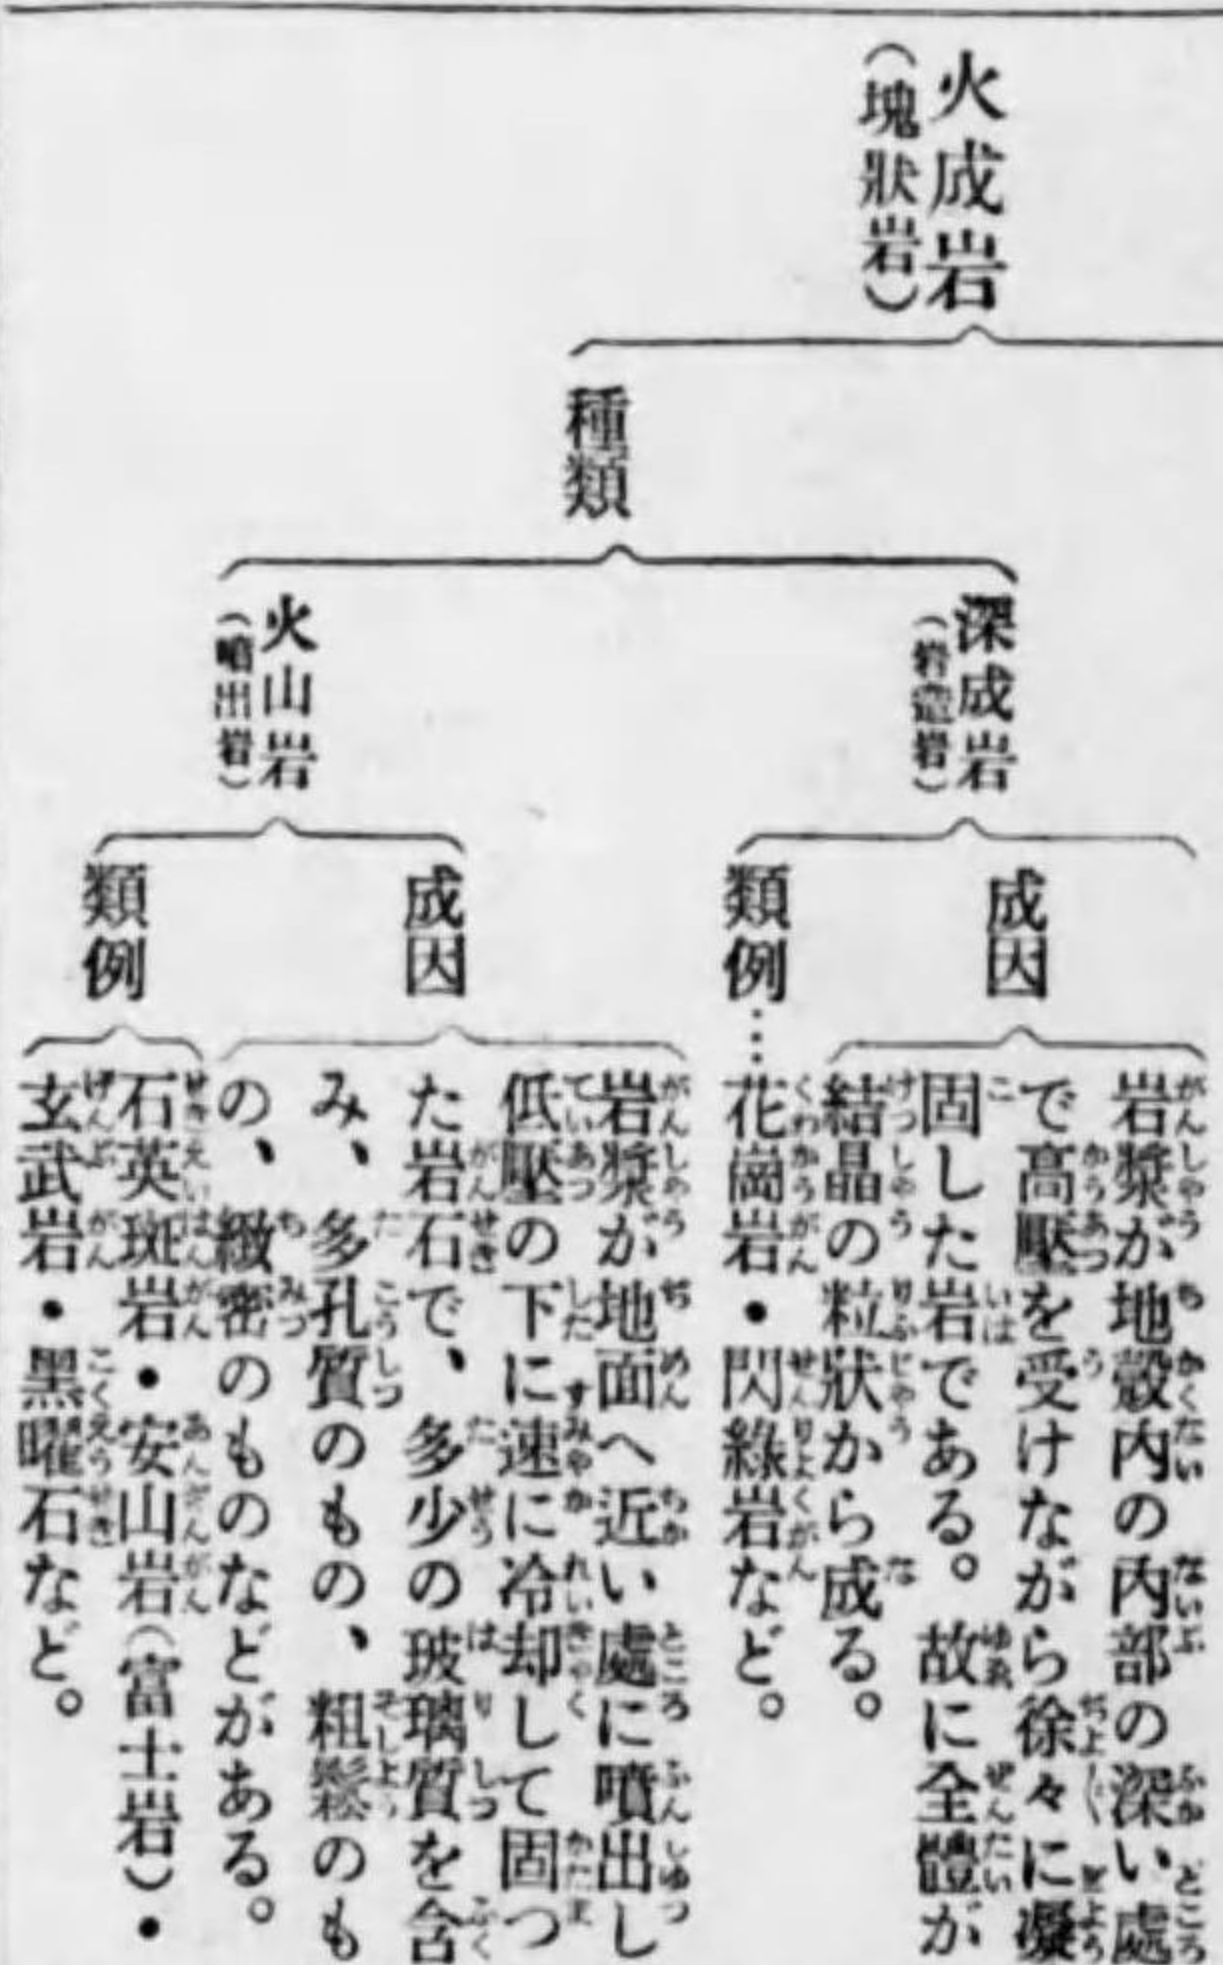 火成岩
（塊狀岩）
種類
深成岩
（岩漿岩）
成因
岩漿が地殼内の内部の深い處
で高壓を受けながら徐々に凝
固した岩である。故に全體が
結晶の粒狀から成る。
類例…花崗岩・閃綠岩など。
火山岩
（噴出岩）
成因
岩漿が地面へ近い處に噴出し
低壓の下に速に冷却して固つ
た岩石で、多少の玻璃質を含
み、多孔質のもの、粗鬆のも
の、緻密のものなどがある。
類例
石英斑岩・安山岩（富士岩）・
玄武岩・黑曜石など。